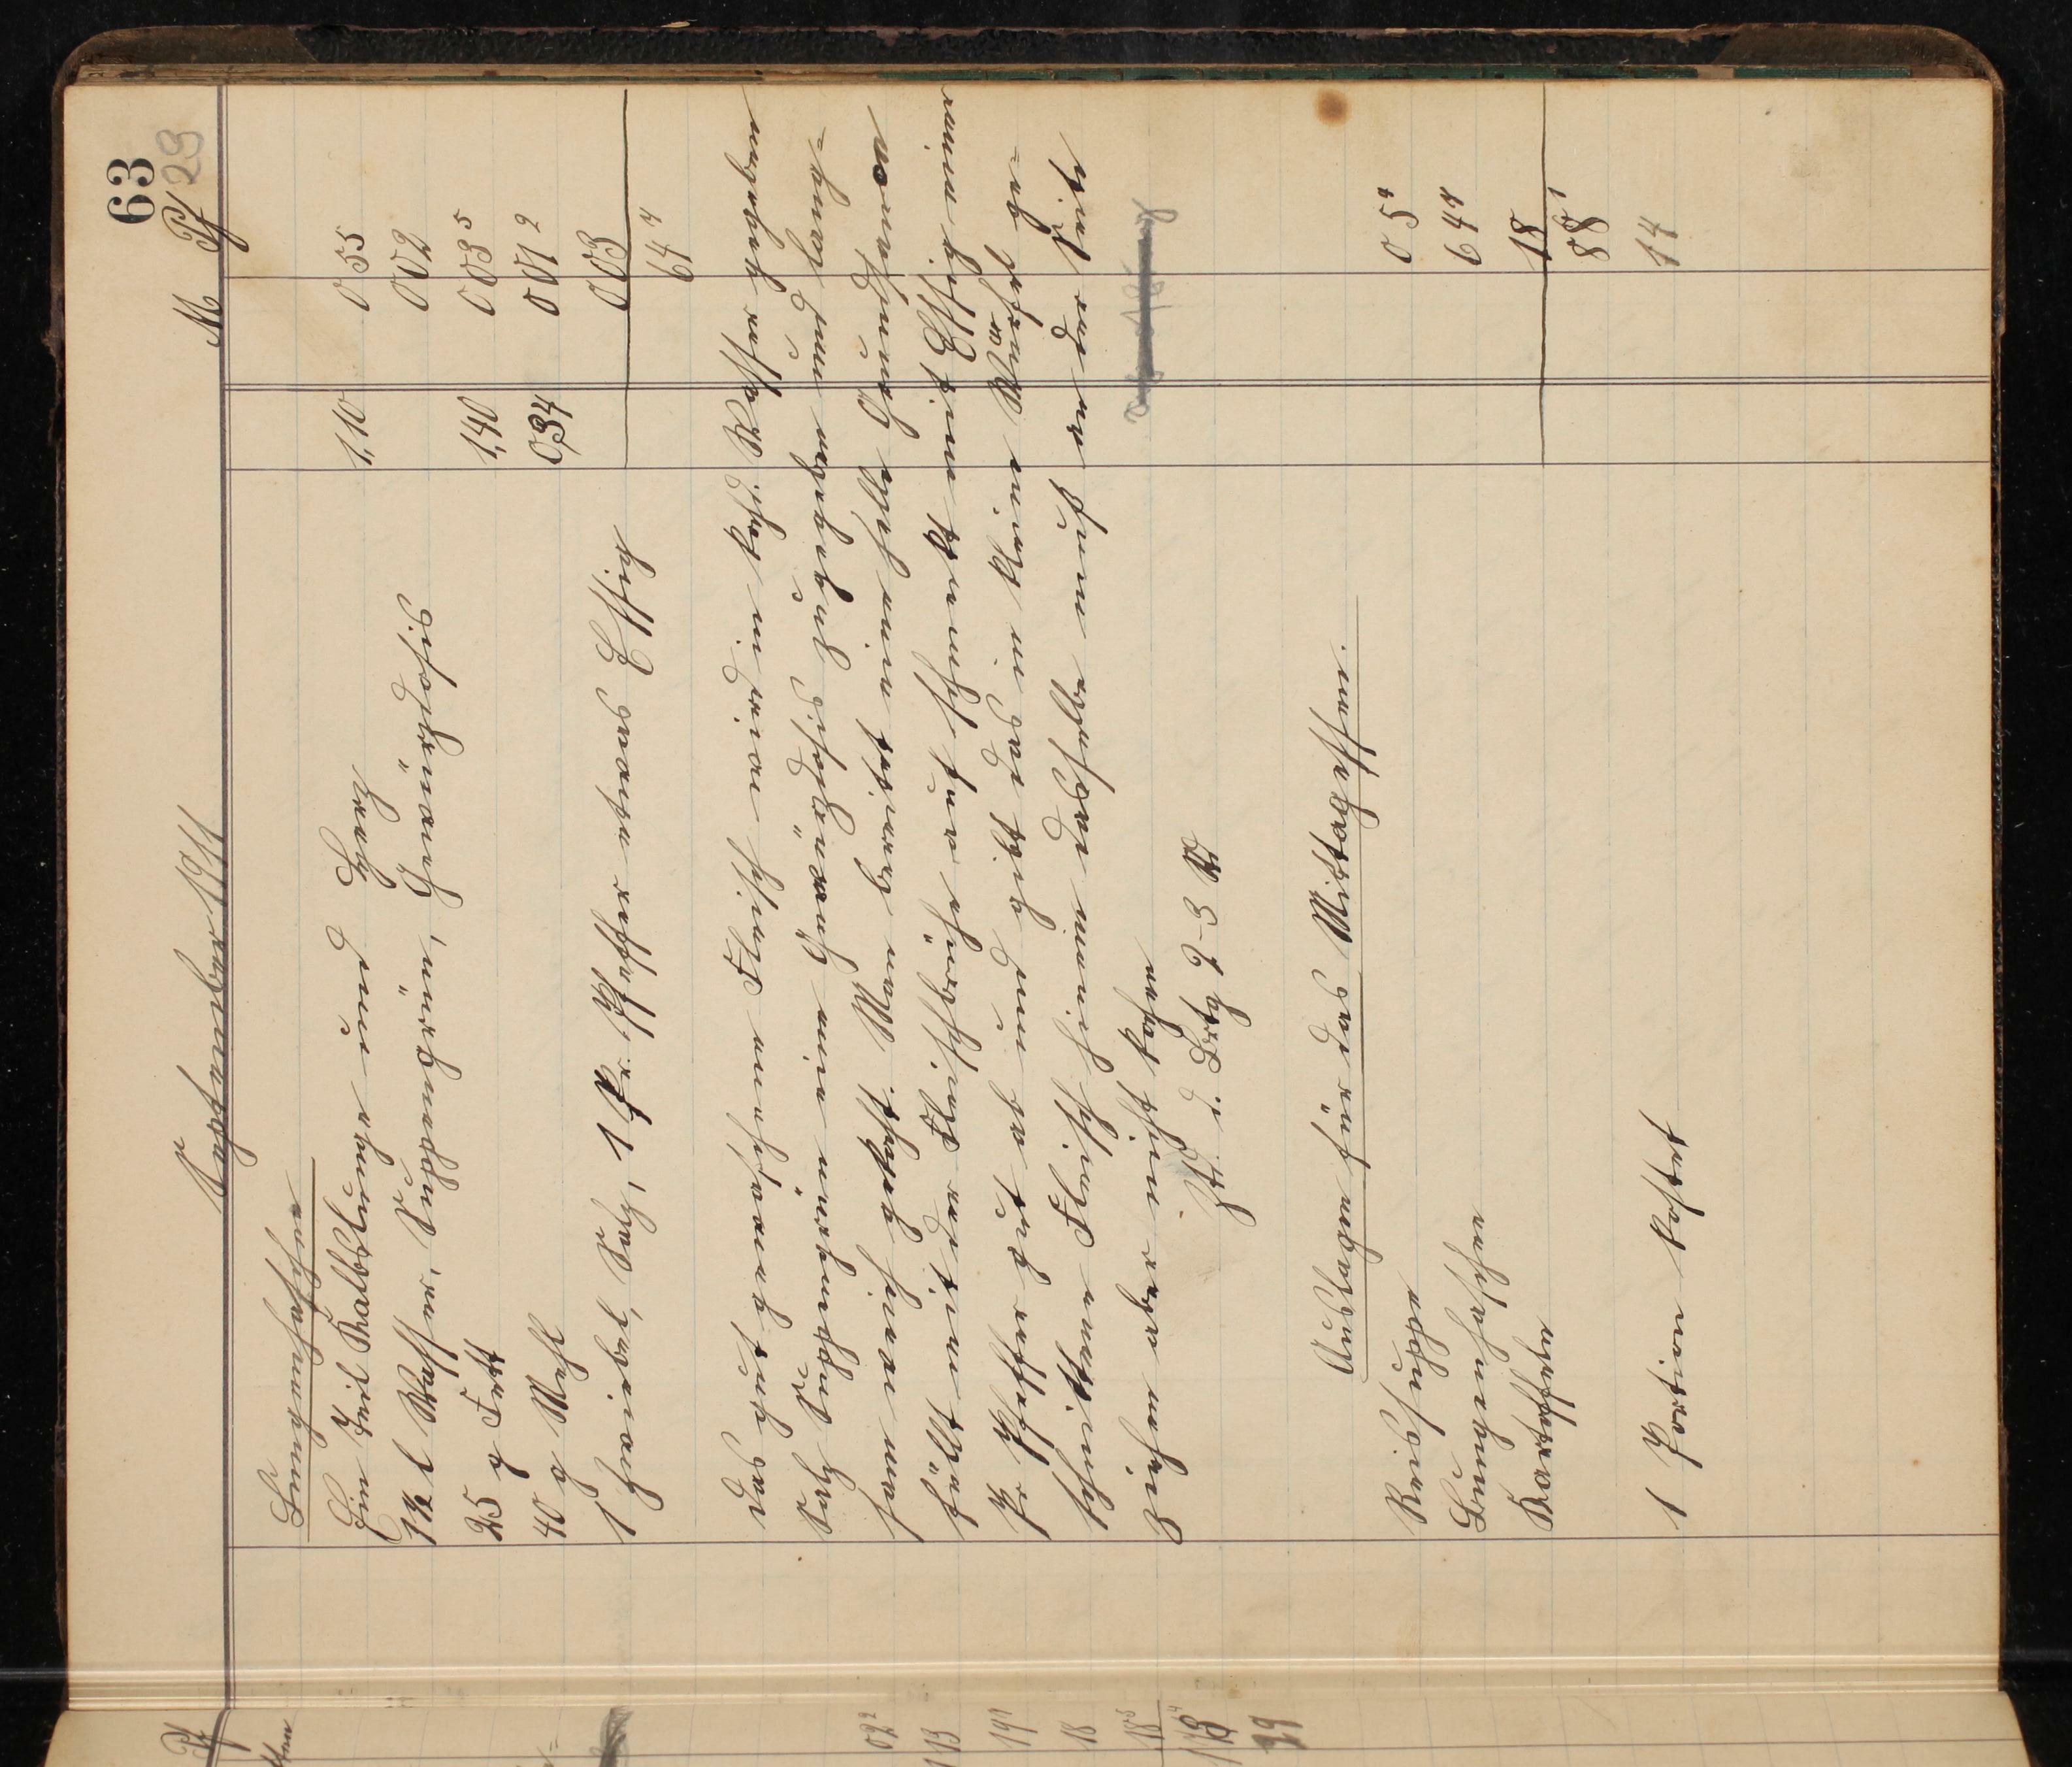 63
29
September 1911
M Pf
Lungenhaschee
Ein Teil Kalbslunge und Herz 1,10 0 55
1½ l Wasser, Suppengrün, Gewürzdosis 0 02
25 g Fett 1,40 0 03⁵
40 g Mehl 0,34 0 01²
1 Zwiebel, Salz, 1 Pr. Pfeffer etwas Essig 0 03
64⁴
Das gut gewaschene Fleisch wird in koch. Wasser gegeben
Salz Suppengrün eine Gewürzdosis zugegeben und lang=
sam weich gekocht. Man bereitet eine helle Tunke
füllt mit der Fleischbrühe auf schmeckt mit Essig einer
Pr Pfeffer gut ab und gibt das in kleine Würfel ge=
schnittene Fleisch hinein das dasselbe muß wieder Zeit
ziehen aber nicht kochen
Zt. d. Brtg 2-3 St
Auslagen für das Mittagessen.
Reissuppe 0 5⁴
Lungenhaschee 64⁴
Kartoffeln 18
88¹
1 Portion kostet 14